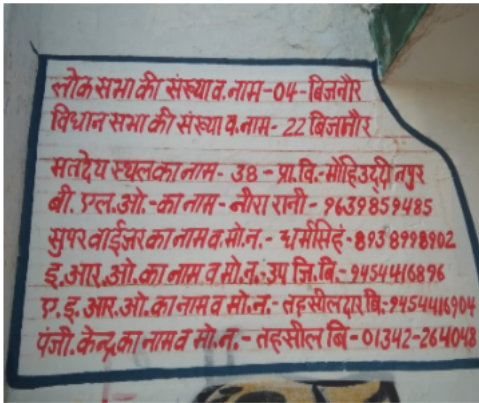 लोक सभा की संख्या व. नाम-04-बिजनौर
विधान सभा की संख्या व. नाम- 22 बिजनौर
मतदेय स्थल का नाम- 38 - प्रा. वि.- मौहिउद्दीनपुर
बी. एल. ओ.-का नाम - नीरा रानी- 9639859485
सुपरवाईजर का नाम व. मो. न.- धर्मसिंह- 8938998902
इ. आर. ओ. का नाम व मो. न.- उप जि. बि.- 9454416896
ए. इ. आर. ओ. का नाम व मो. न.- तहसीलदार बि.- 9454416904
पंजी. केन्द्र का नाम व मो. न.- तहसील बि - 01342-264048